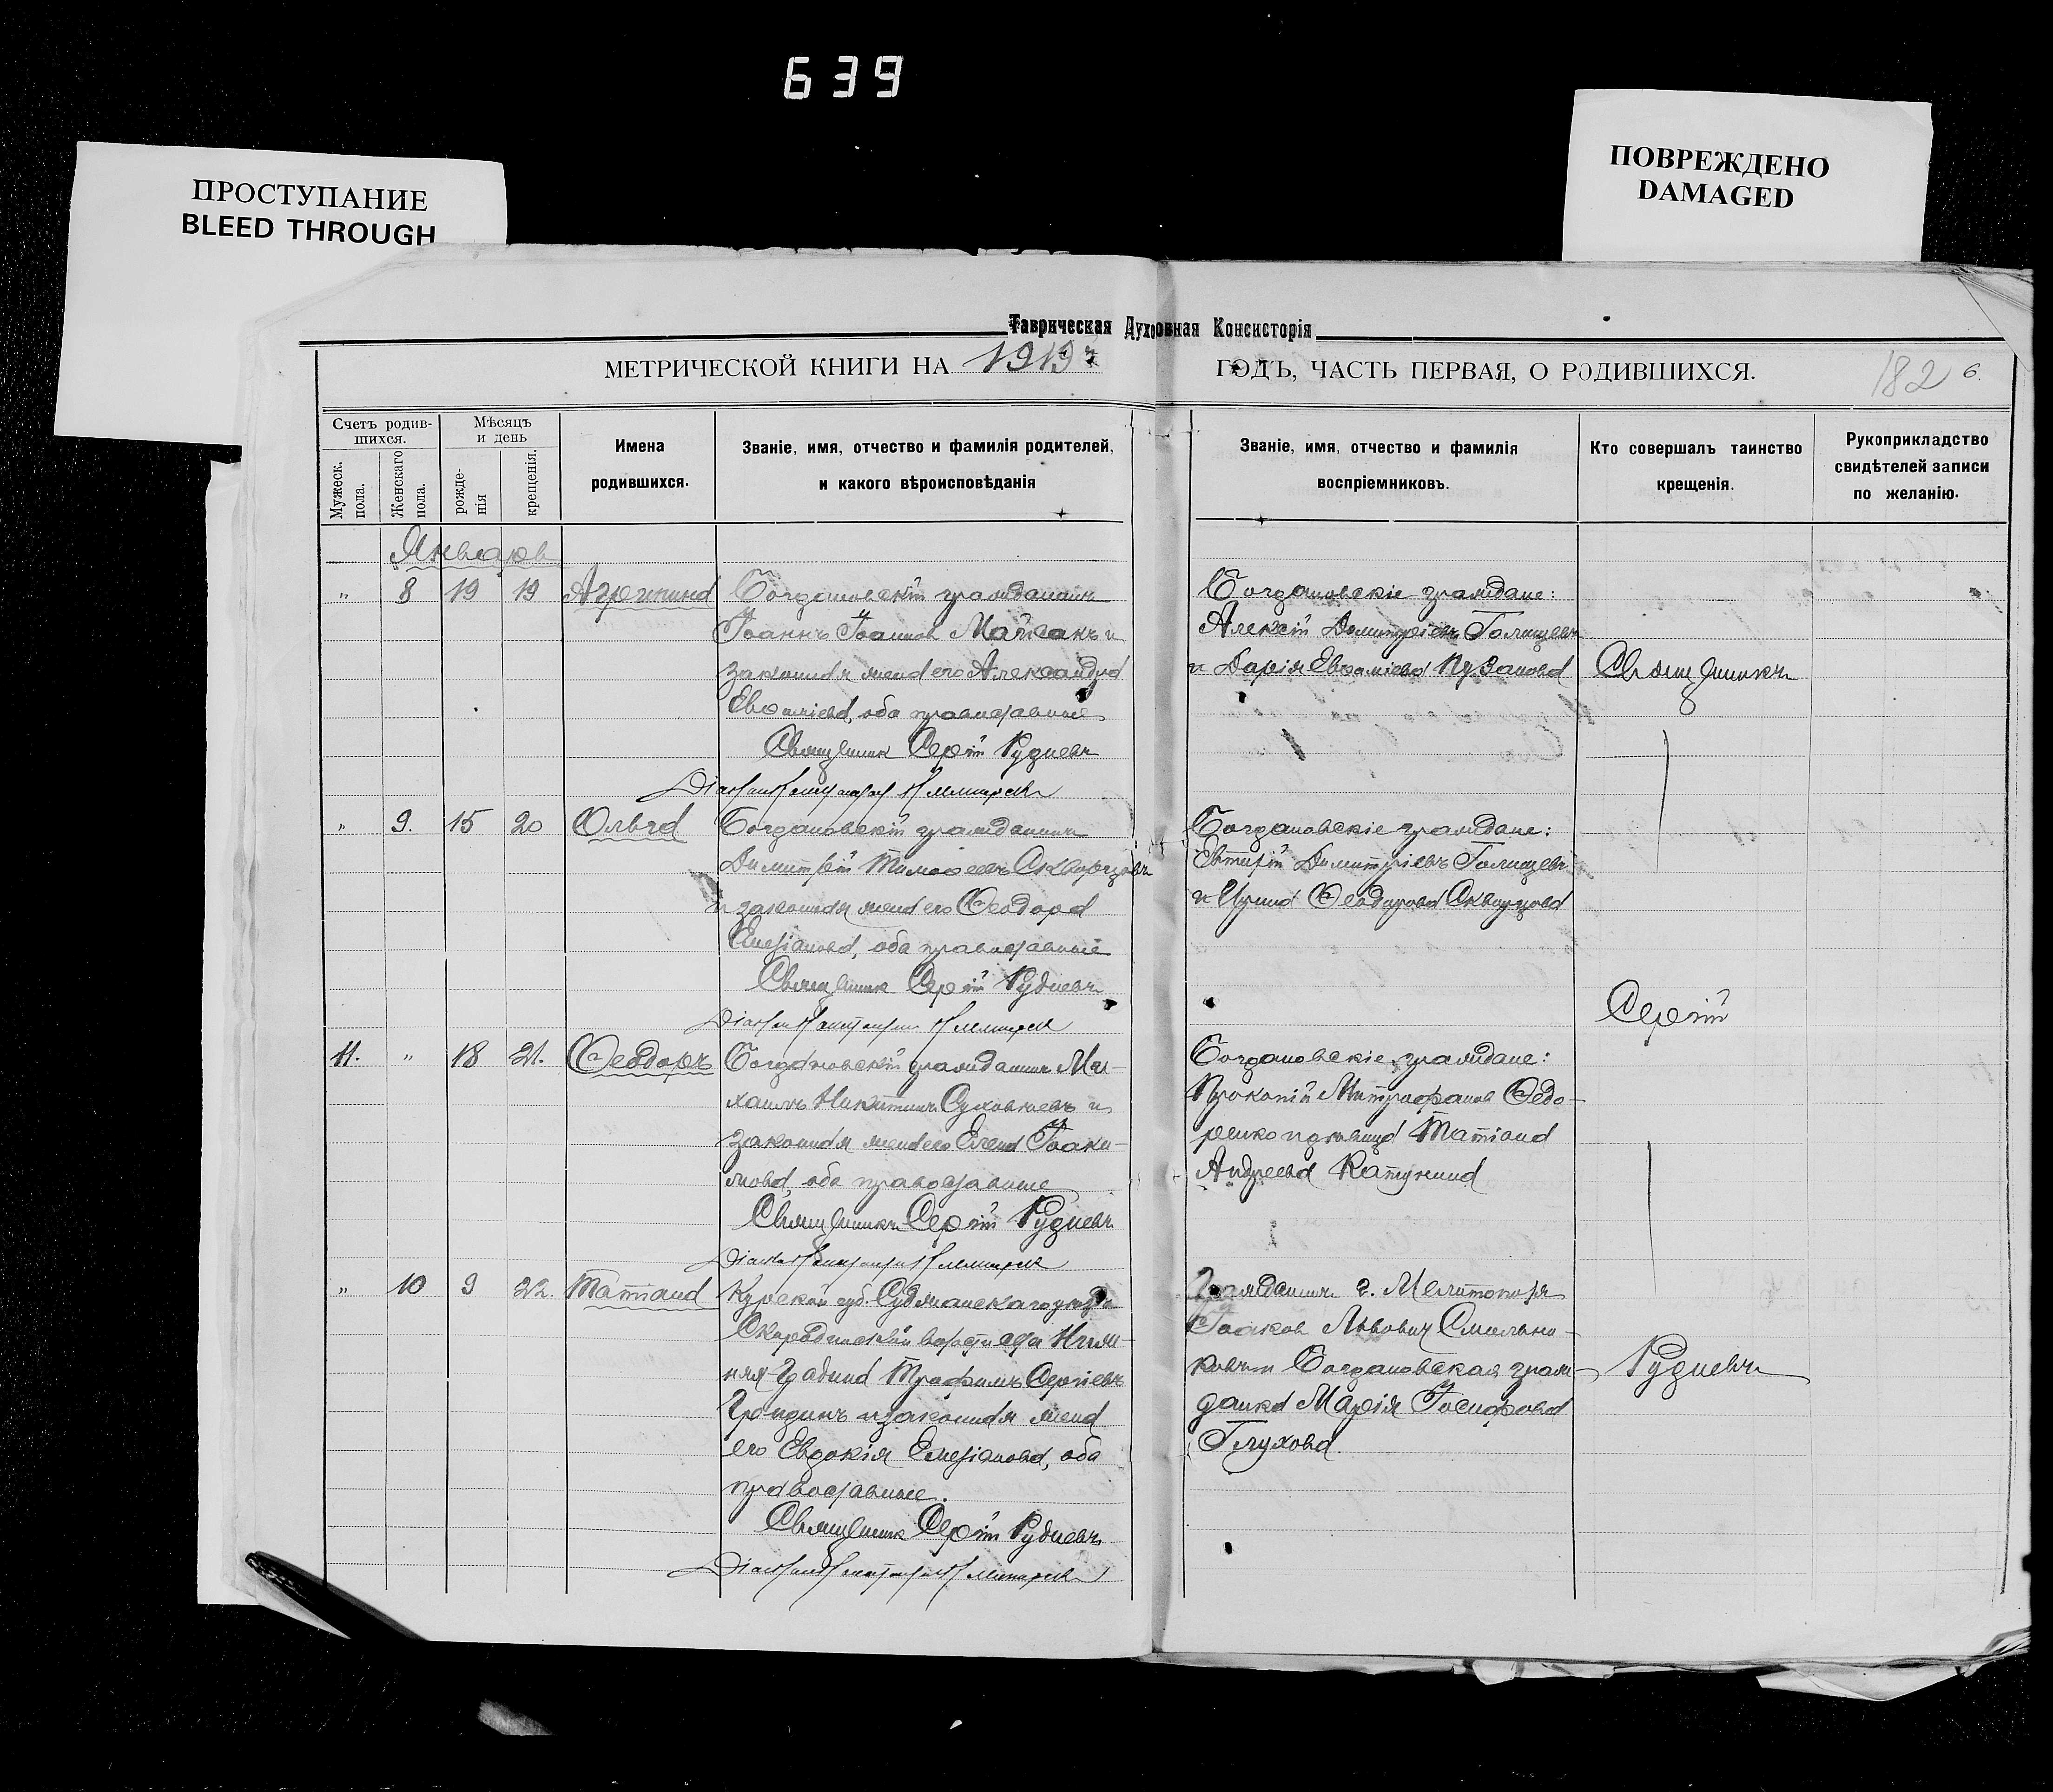 639
ПРОСТУПАНИЕ
BLEED THROUGH
ПОВРЕЖДЕНО
DAMAGED
Таврическая Духовная Консисторія
МЕТРИЧЕСКОЙ КНИГИ НА 1919 г ГОДЪ, ЧАСТЬ ПЕРВАЯ, О РОДИВШИХСЯ.
182 6.
Счетъ родив-
шихся.
Мужеск.
пола.
Женскаго
пола.
Мѣсяцъ
и день
рожде-
нія
крещенія.
Имена
родившихся.
Званіе, имя, отчество и фамилія родителей,
и какого вѣроисповѣданія
Званіе, имя, отчество и фамилія
воспріемниковъ.
Кто совершалъ таинство
крещенія.
Рукоприкладство
свидѣтелей записи
по желанію.
Январь
" 8 19 19 Агрепина
Богдановскій гражданинъ
Іоаннъ Іоанновъ и
законная жена его Александра
Евфиміева, оба православные
Священникъ Сергій Рудневъ
Діаконъ
Богдановскіе граждане:
Алексій Димитріевъ Голищевъ
и Дарія Евфиміева Пузанова
Священникъ
" 9. 15 20 Ольга
Богдановскій гражданинъ
Димитрій Тимофеевъ Скворцовъ
и законная жена его Феодора
Емеліанова, оба православные
Священникъ Сергій Рудневъ
Діаконъ
Богдановскіе граждане:
Димитріевъ Голищевъ
и Ирина Феодорова Скворцова
Сергій
11. " 18 21. Феодоръ
Богдановскій гражданинъ Ми-
хаилъ Никитинъ и
законная жена его Елена Іоаки-
мова, оба православные
Священникъ Сергій Рудневъ
Діаконъ
Богдановскіе граждане:
Прокопій Митрофановъ Федо-
ренко и дѣвица Татіана
Андреева Катунина
" 10 9 22. Татіана
Курской губ. Суджанскаго уѣзда
Скороднянской волости села Ниж-
няя Трофимъ Сергіевъ
и законная жена
его Евдокія Емеліанова, оба
православные.
Священникъ Сергій Рудневъ
Діаконъ
Гражданинъ г. Мелитополя
Іаковъ Львовичъ Смольни-
ковъ и Богдановская граж-
данка Марія Іосифова
Глухова.
Рудневъ